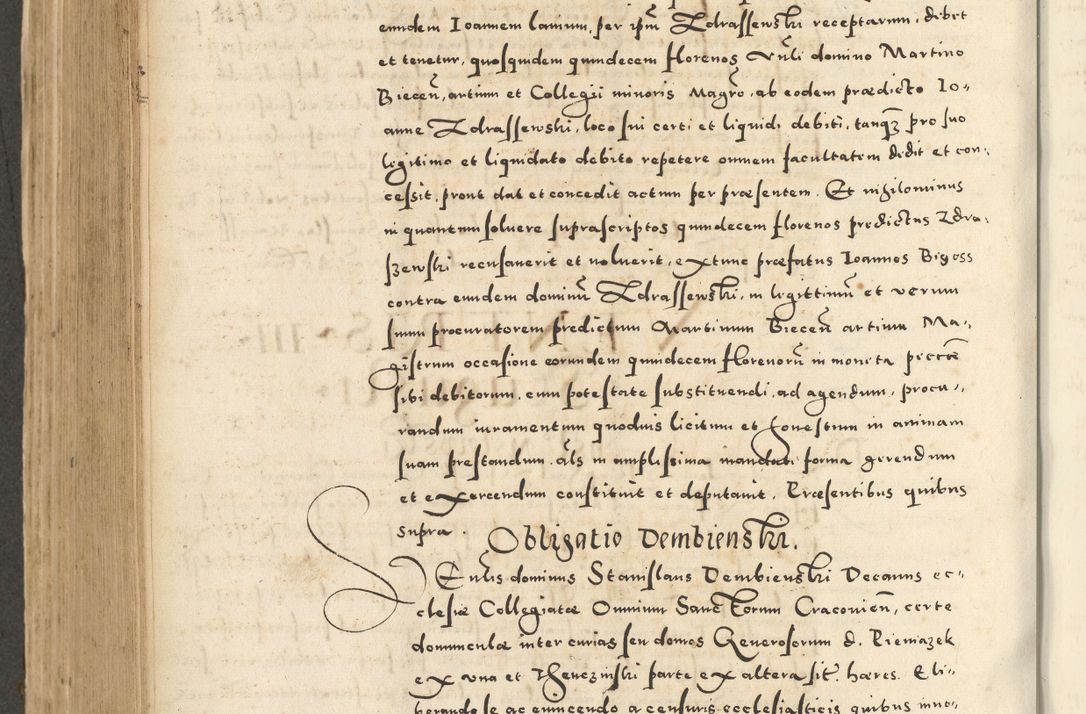 eundem Ioannem lanium, per ipm̄ Zdrassewski receptarum, debet
et tenetur, quosquidem quindecem florenos Vnli domino Martino
Biecen̄, artium et Collegii minoris Magrō, ab eodem prædicto Io-
anne Zdrassewski, loco sui certi et liquidi debiti, tanq̄ pro suo
legitimo et liquidato debito repetere omnem facultatem dedit et con-
cessit, prout dat et concedit actum per præsentem. Et nihilominus
in quantum soluere suprascriptos quindecem florenos predictus Zdra-
szewski recusauerit et noluerit, extunc præfatus Ioannes Bigoss
contra eundem dominū Zdrassewski, in legittimū et verum
suum procuratorem predictum Martinum Biecen̄ artium Ma-
gistrum occasione eorundem quindecem florenorū in moneta
sibi debitorum, cum potestate substituendi, ad agendum, procu-
randum iuramentum quoduis licitum et honestum in animam
suam prestandum, als̄ in amplissima mandati forma gerendum
et exercendum constituit et deputauit. Præsentibus quibus
supra.
Obligatio Dembienski.
VEnlis dominus Stanislaus Dembienski Decanus ec-
clesiæ Collegiatæ Omnium Sanctorum Cracouien̄, certe
domunculæ inter curias seu domos Generosorum d. Pieniazek
ex vna et Thenczinski parte ex altera sit. hæres. Eli-
berando se ac eximendo a censuris ecclesiasticis quibus inno-